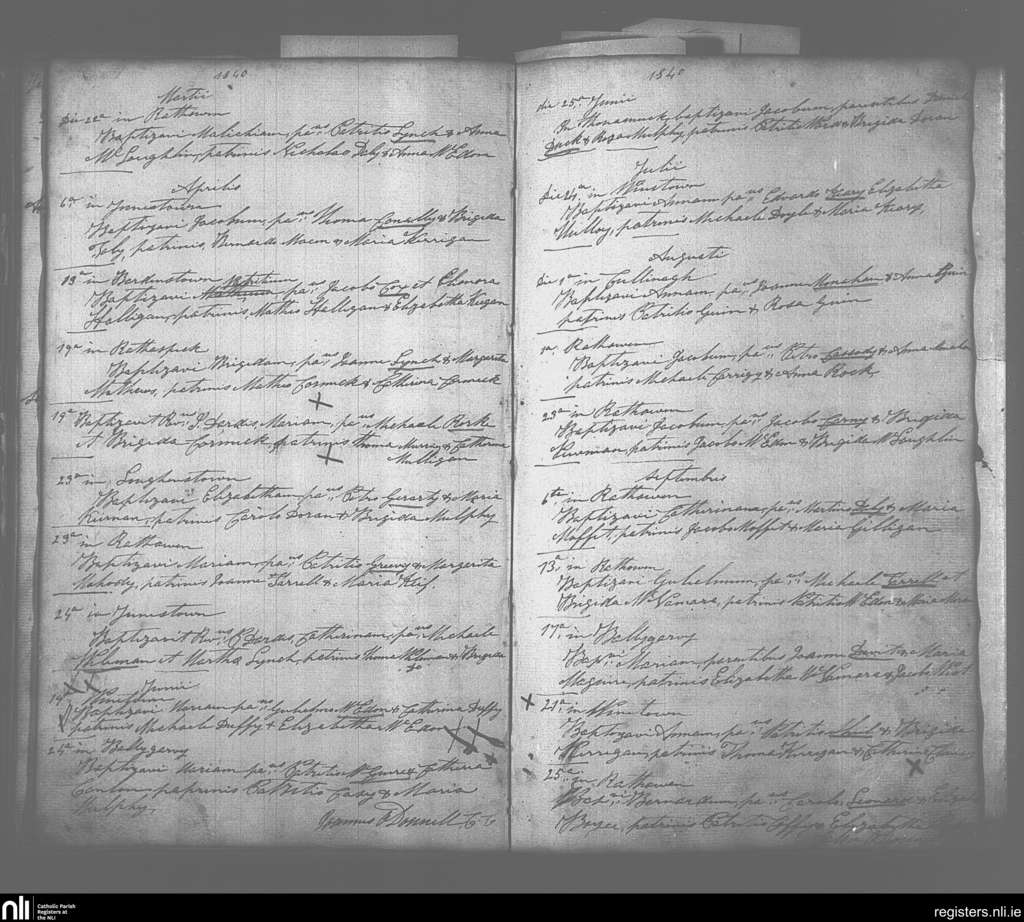 1840
Martii
Die 22a in Rathowen
Baptizavi Malichiam, pa.us Patritio Lynch & Anna
McLoughlin, patrinis Nicholas Daly & Anna McEdon
Aprilis
6a in Junestown
Baptizavi Jacobum, pa.us Thoma Conally & Brigida
patrinis, Bernardo & Maria Kerrigan
13a in
Baptizavi pa.us Jacobo Cox et Elenora
Halligan, patrinis, Matheo Halligan & Elizabetha Keegan
19a in Rathaspick
Baptizavi Brigidam, pa.us Joanne Lynch & Margarita
Mathews, patrinis Matheo Cormick & Catherina Cormick
19a Baptizavit Rvs. P. Dardis, Mariam, pa.us Michaele Rork
et Brigida Cormick, patrinis Thoma Murrin & Catherina
Mulligan
23a in
Baptizavi Elizabetham, pa.us Petro Gerarty & Maria
Kiernan, patrinis Carolo Doran & Brigida Mulphy
23a in Rathowen
Baptizavi Mariam, pa.us Patritio Greevy & Margarita
patrinis Joanne Farrell & Maria
25a in Junestown
Baptizavit Rvs. P. Dardis, Catherinam, pa.us Michaele
et Martha Lynch, patrinis Thoma & Brigida
Do
Junii
14a
Baptizavi Mariam pa.us Gulielmo McEdon & Catherina Duffy
patrinis Michaele Duffy & Elizabetha McEdon
24a in Ballygarvy
Baptizavi Mariam pa.us Patritio McGuire & Catherina
Conlon, patrinis Patritio Casey & Maria
Mulphy,
Joannes O'Donnell C C
1840
die 25a Junii
In baptizavi Jacobum, parentibus Daniel
& Rosa Mulphy, patrinis Patritio Ward & Brigida Doran
Julii
Die 24a in Winetown
Baptizavi Annam pa.us Edwardo Geary Elizabetha
Mulloy, patrinis Michaele Doyle & Maria Geary,
Augusti
Die 1a in Cullinagh
Baptizavi Annam pa.us Joanne Monahan & Anna Guin
patrinis Patritio Guin & Rosa Guin
1a. Rathowen
Baptizavi Jacobum, pa.us Petro Cassedy & Anna
patrinis Michaele Corrigy & Anna Rock,
23a in Rathowen
Baptizavi Jacobum, pa.us Jacobo & Brigida
patrinis Jacobo McEdon & Brigida McLoughlin
Septembris
6ta in Rathowen
Baptizavi Catherinam, pa.us Martino Daly & Maria
Moffet, patrinis Jacobo Moffet & Maria Gilligan
13a. in Rathowen
Baptizavi Gulielmum, pa.us Michaele Farrell et
Brigida McNamara, patrinis Patritio McEdon & Maria
17a. in Ballygarvy
Bap.vi Mariam, parentibus Joanne & Maria
Maguire, patrinis Elizabetha McNamara & Jacobo
21a. in Winetown
Baptizavi Annam, pa.us Patritio & Brigida
Kerrigan, patrinis Thoma Kerrigan & Catherina
25a. in Rathowen
Bap.vi Bernardum, pa.us Carolo Leonard &
patrinis Patritio & Elizabetha
nli
Catholic Parish
Registers at
the NLI
registers.nli.ie